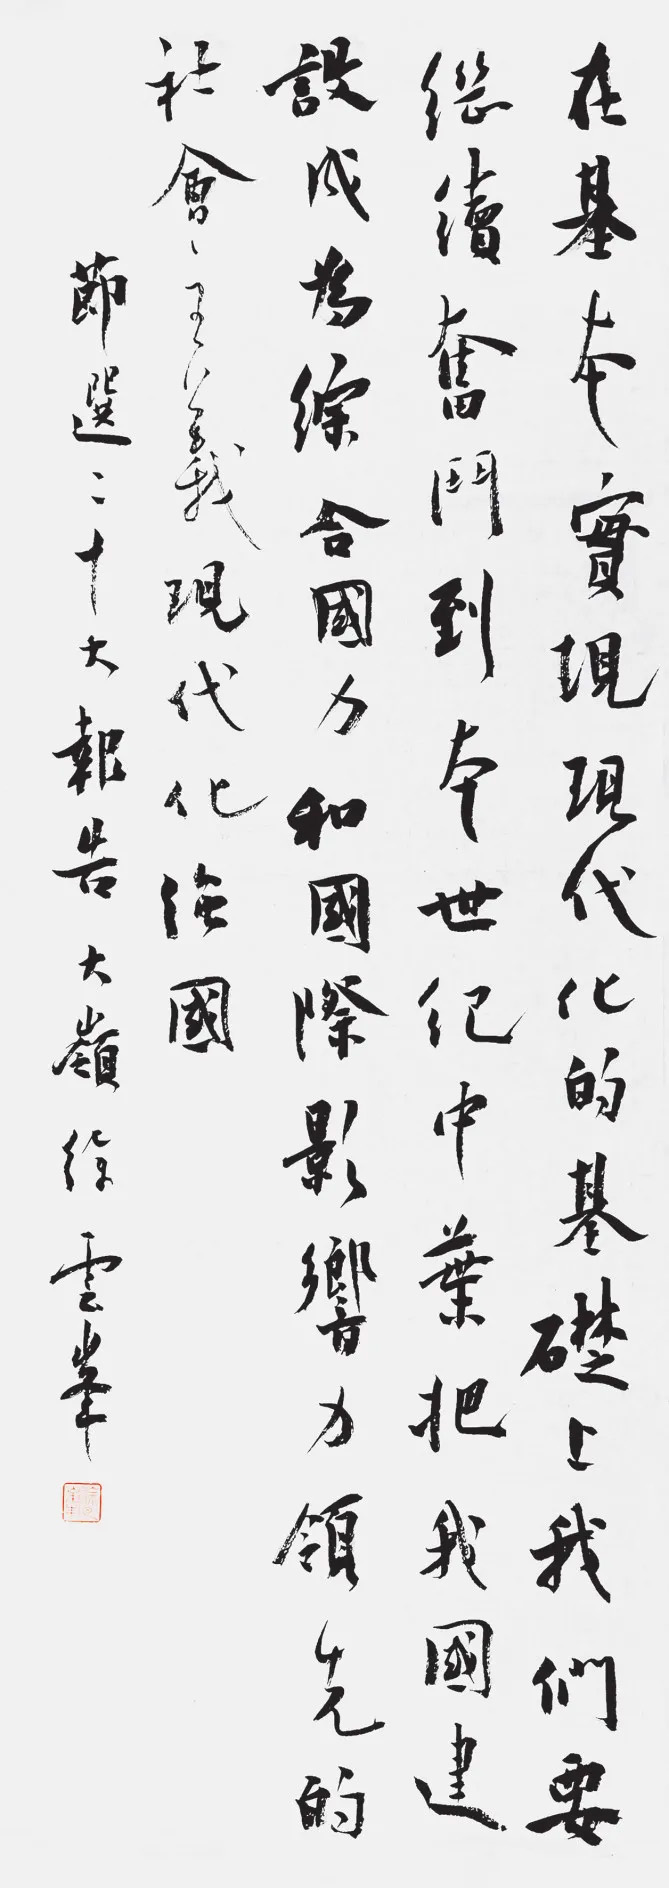 在基本實現現代化的基礎上我們要
繼續奮鬥到本世紀中葉把我國建
設成為綜合國力和國際影響力領先的
社會主義現代化強國
節選二十大報告 大嶺徐雲峯